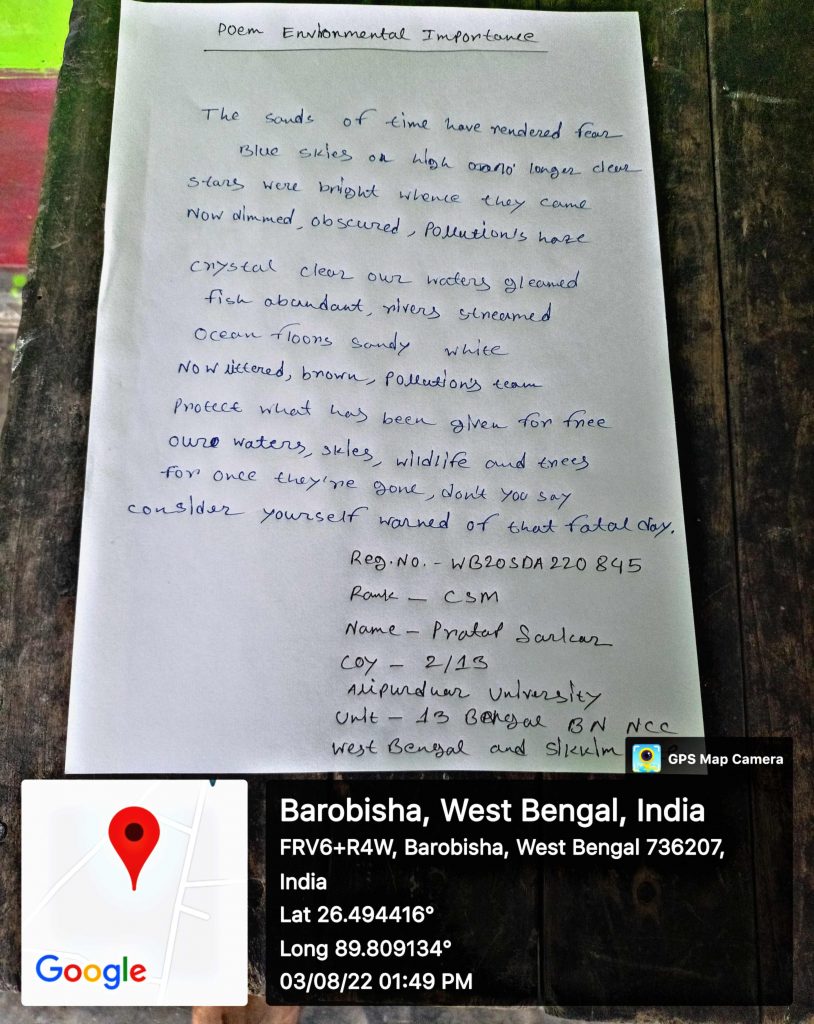 Poem Envionmental Importance
The sands of time have rendered fear
Blue skies on high no longer clear
stars were bright whence they came
Now dimmed, obscured, Pollution's haze
crystal clear our waters gleamed
fish abundant, rivers streamed
ocean floors sandy white
Now littered, brown, Pollution's team
Protect what has been given for free
oure waters, skies, wildlife and trees
for once they're gone, don't you say
consider yourself warned of that fatal day.
Reg.No. - WB20SDA220845
Rank - CSM
Name - Pratap Sarkar
COY - 2/13
Alipurduar University
Unit - 13 Bengal BN NCC
West Bengal and Sikkim
GPS Map Camera
Barobisha, West Bengal, India
FRV6+R4W, Barobisha, West Bengal 736207,
India
Lat 26.494416°
Long 89.809134°
03/08/22 01:49 PM
Google